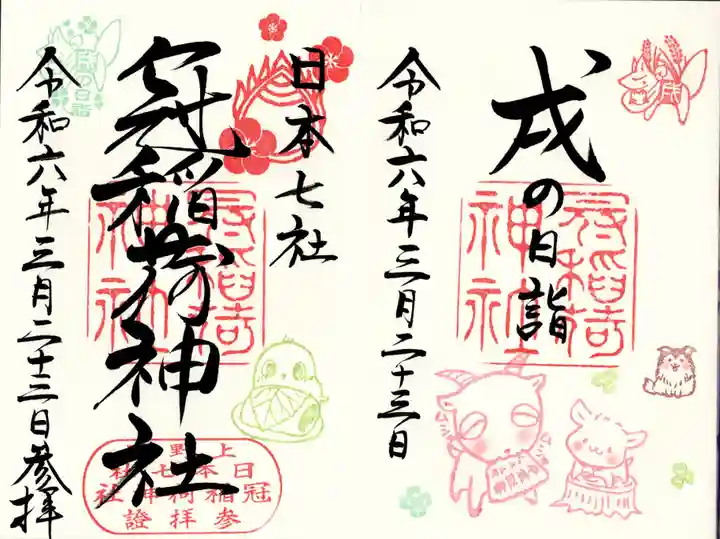 戌の日詣
令和六年三月二十三日
冠稲荷神社
日本七社
冠稲荷神社
令和六年三月二十三日参拝
冠稲荷神社
上野
日本七社
冠稲荷神社
参拝證
戌の日詣